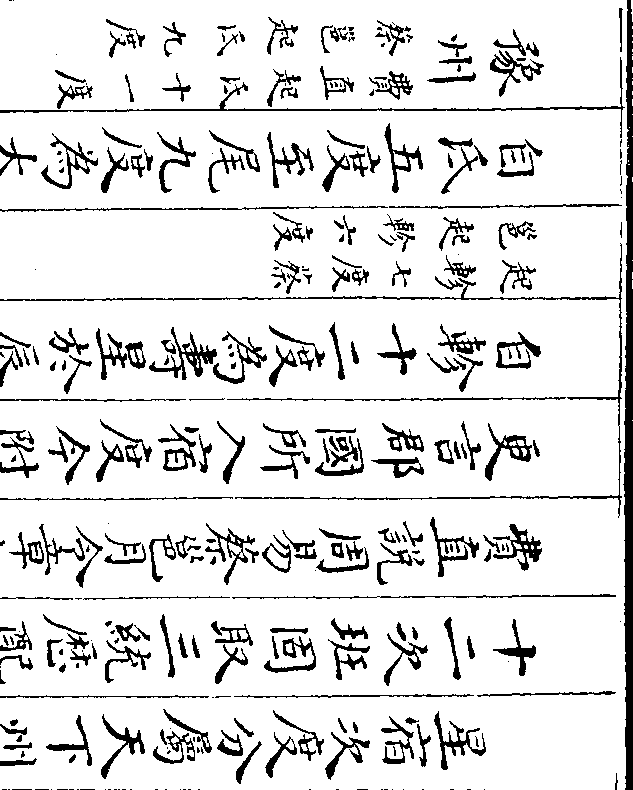 星宿次度分屬天下州
十二次班固取三統厯配
費直說周易蔡邕月令章
更言郡國所入宿度今附
自軫十二度為壽星於辰
起軫七度蔡
邕起軫六度
自氐五度至尾九度為大
豫州
費直起氐十一度
蔡邕起氐九度